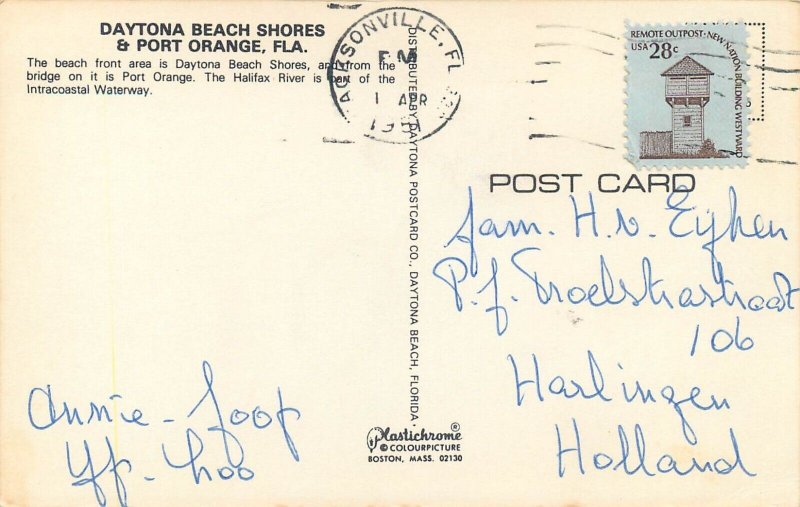 DAYTONA BEACH SHORES
& PORT ORANGE, FLA.
The beach front area is Daytona Beach Shores, and from the
bridge on it is Port Orange. The Halifax River is part of the
Intracoastal Waterway.
JACKSONVILLE, FL
PM
1 APR
REMOTE OUTPOST · NEW NATION BUILDING WESTWARD
USA 28c
DISTRIBUTED BY DAYTONA POSTCARD CO., DAYTONA BEACH, FLORIDA.
POST CARD
fam. H. v. Eyken
P.J. Troelstrastraat
106
Harlingen
Holland
Annie - Joop
Plastichrome®
© COLOURPICTURE
BOSTON, MASS. 02130